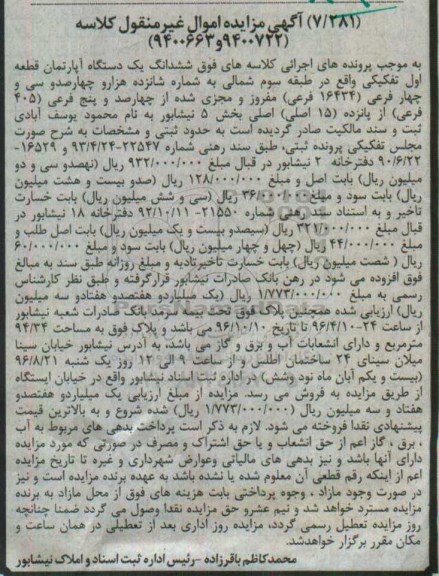 (۷/۲۸۱) آگهی مزایده اموال غیرمنقول کلاسه
(۹۴۰۰۷۲۲و۹۴۰۰۶۶۳)
به موجب پرونده های اجرائی کلاسه های فوق ششدانگ یک دستگاه آپارتمان قطعه
اول تفکیکی واقع در طبقه سوم شمالی به شماره شانزده هزارو چهارصدو سی و
چهار فرعی (۱۶۴۳۴ فرعی) مفروز و مجزی شده از چهارصد و پنج فرعی (۴۰۵
فرعی) از پانزده (۱۵ اصلی) اصلی بخش ۵ نیشابور به نام محمود یوسف آبادی
ثبت و سند مالکیت صادر گردیده است به حدود ثبتی و مشخصات به شرح صورت
مجلس تفکیکی پرونده ثبتی، طبق سند رهنی شماره ۲۲۵۴۷-۹۳/۴/۲۴ و ۱۶۵۲۹-
۹۰/۶/۲۲ دفترخانه ۲ نیشابور در قبال مبلغ ۹۳۲/۰۰۰/۰۰۰ ریال (نهصدو سی و دو
میلیون ریال) بابت اصل و مبلغ ۱۲۸/۰۰۰/۰۰۰ ریال (صدو بیست و هشت میلیون
ریال) بابت سود و مبلغ ۳۶/۰۰۰/۰۰۰ ریال (سی و شش میلیون ریال) بابت خسارت
تاخیر و به استناد سند رهنی شماره ۲۱۵۵۰-۹۲/۱۰/۱۱ دفترخانه ۱۸ نیشابور در
قبال مبلغ ۳۲۱/۰۰۰/۰۰۰ ریال (سیصدو بیست و یک میلیون ریال) بابت اصل طلب و
مبلغ ۴۴/۰۰۰/۰۰۰ ریال (چهل و چهار میلیون ریال) بابت سود و مبلغ ۶۰/۰۰۰/۰۰۰
ریال ( شصت میلیون ریال) بابت خسارت تاخیرتادیه و مبلغ روزانه طبق سند به مبالغ
فوق افزوده می شود در رهن بانک صادرات نیشابور قرارگرفته و طبق نظر کارشناس
رسمی به مبلغ ۱/۷۷۳/۰۰۰/۰۰۰ ریال (یک میلیاردو هفتصدو هفتادو سه میلیون
ریال) ارزیابی شده همچنین پلاک فوق تحت بیمه نزد بانک صادرات شعبه نیشابور
از ساعت ۲۴-۹۶/۴/۱۰ تا تاریخ ۹۶/۱۰/۱۰ می باشد و پلاک فوق به مساحت ۹۴/۳۴
مترمربع و دارای انشعابات آب و برق و گاز می باشد، به آدرس نیشابور خیابان سینا
میلان سینای ۲۴ ساختمان اطلس و از ساعت ۹ الی ۱۲ روز یک شنبه ۹۶/۸/۲۱
(بیست و یکم آبان ماه نود وشش) در اداره ثبت اسناد نیشابور واقع در خیابان ایستگاه
از طریق مزایده به فروش می رسد. مزایده از مبلغ ارزیابی یک میلیاردو هفتصدو
هفتاد و سه میلیون ریال (۱/۷۷۳/۰۰۰/۰۰۰ ریال) شده شروع و به بالاترین قیمت
پیشنهادی نقدا فروخته می شود. لازم به ذکر است پرداخت بدهی های مربوط به آب
، برق ، گاز اعم از حق انشعاب و یا حق اشتراک و مصرف در صورتی که مورد مزایده
دارای آنها باشد و نیز بدهی های مالیاتی وعوارض شهرداری و غیره تا تاریخ مزایده
اعم از اینکه رقم قطعی آن معلوم شده یا نشده باشد به عهده برنده مزایده است و نیز
در صورت وجود مازاد ، وجوه پرداختی بابت هزینه های فوق از محل مازاد به برنده
مزایده مسترد خواهد شد و نیم عشرو حق مزایده نقدا وصول می گردد ضمنا چنانچه
روز مزایده تعطیل رسمی گردد، مزایده روز اداری بعد از تعطیلی در همان ساعت و
مکان مقرر برگزار خواهدشد.
محمدکاظم باقرزاده -رئیس اداره ثبت اسناد و املاک نیشابور